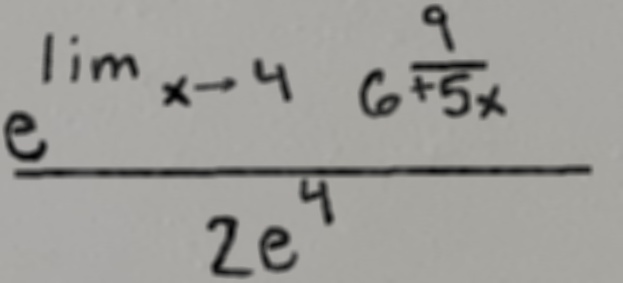 e^{\lim_{x \to 4} 6^{\frac{9}{+5x}}}
2e^4